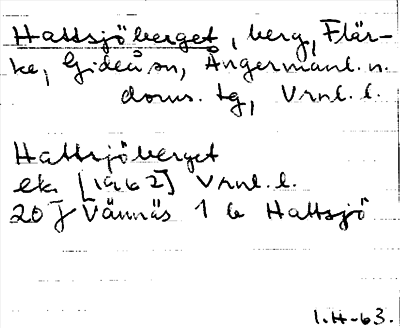 Hattsjöberget, berg, Flär-
ke, Gideå sn, Ångermanl. n.
doms. tg, Vrnl. l.
Hattsjöberget
ek. [1962] Vrnl. l.
20 J Vännäs 1 b Hattsjö
I.H-63.